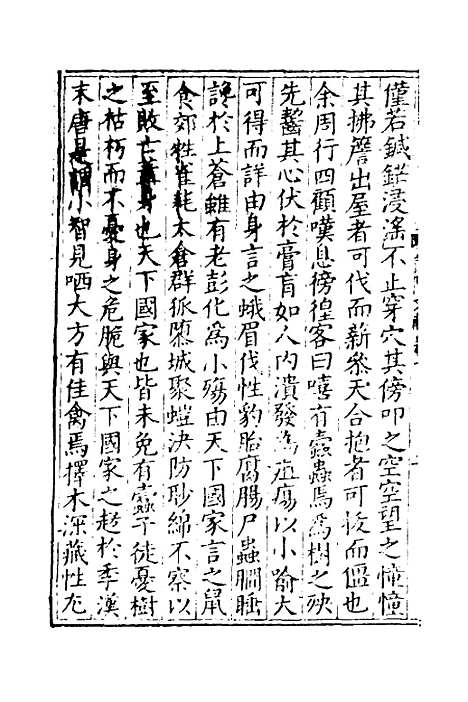 僅若鍼鋩浸滛不止穿穴其傍叩之空空望之幢幢
其拂簷出屋者可伐而薪叅天合抱者可拔而僵也
余周行四顧嘆息傍徨客曰嘻有蠹蟲焉爲樹之殃
先齧其心伏於膏肓如人內潰發為疽瘍以小喻大
可得而詳由身言之蛾眉伐性豹胎腐腸尸蟲瞷睡
讒於上蒼雖有老彭化爲小殤由天下國家言之鼠
食郊牲雀耗太倉群狐隳城聚螘決防眇綿不察以
至敗亡葢身也天下國家也皆未免有蠹子徒憂樹
之枯朽而不憂身之危脆與天下國家之趍於季漢
末唐是謂小智見哂大方有佳禽焉擇木深藏性尨